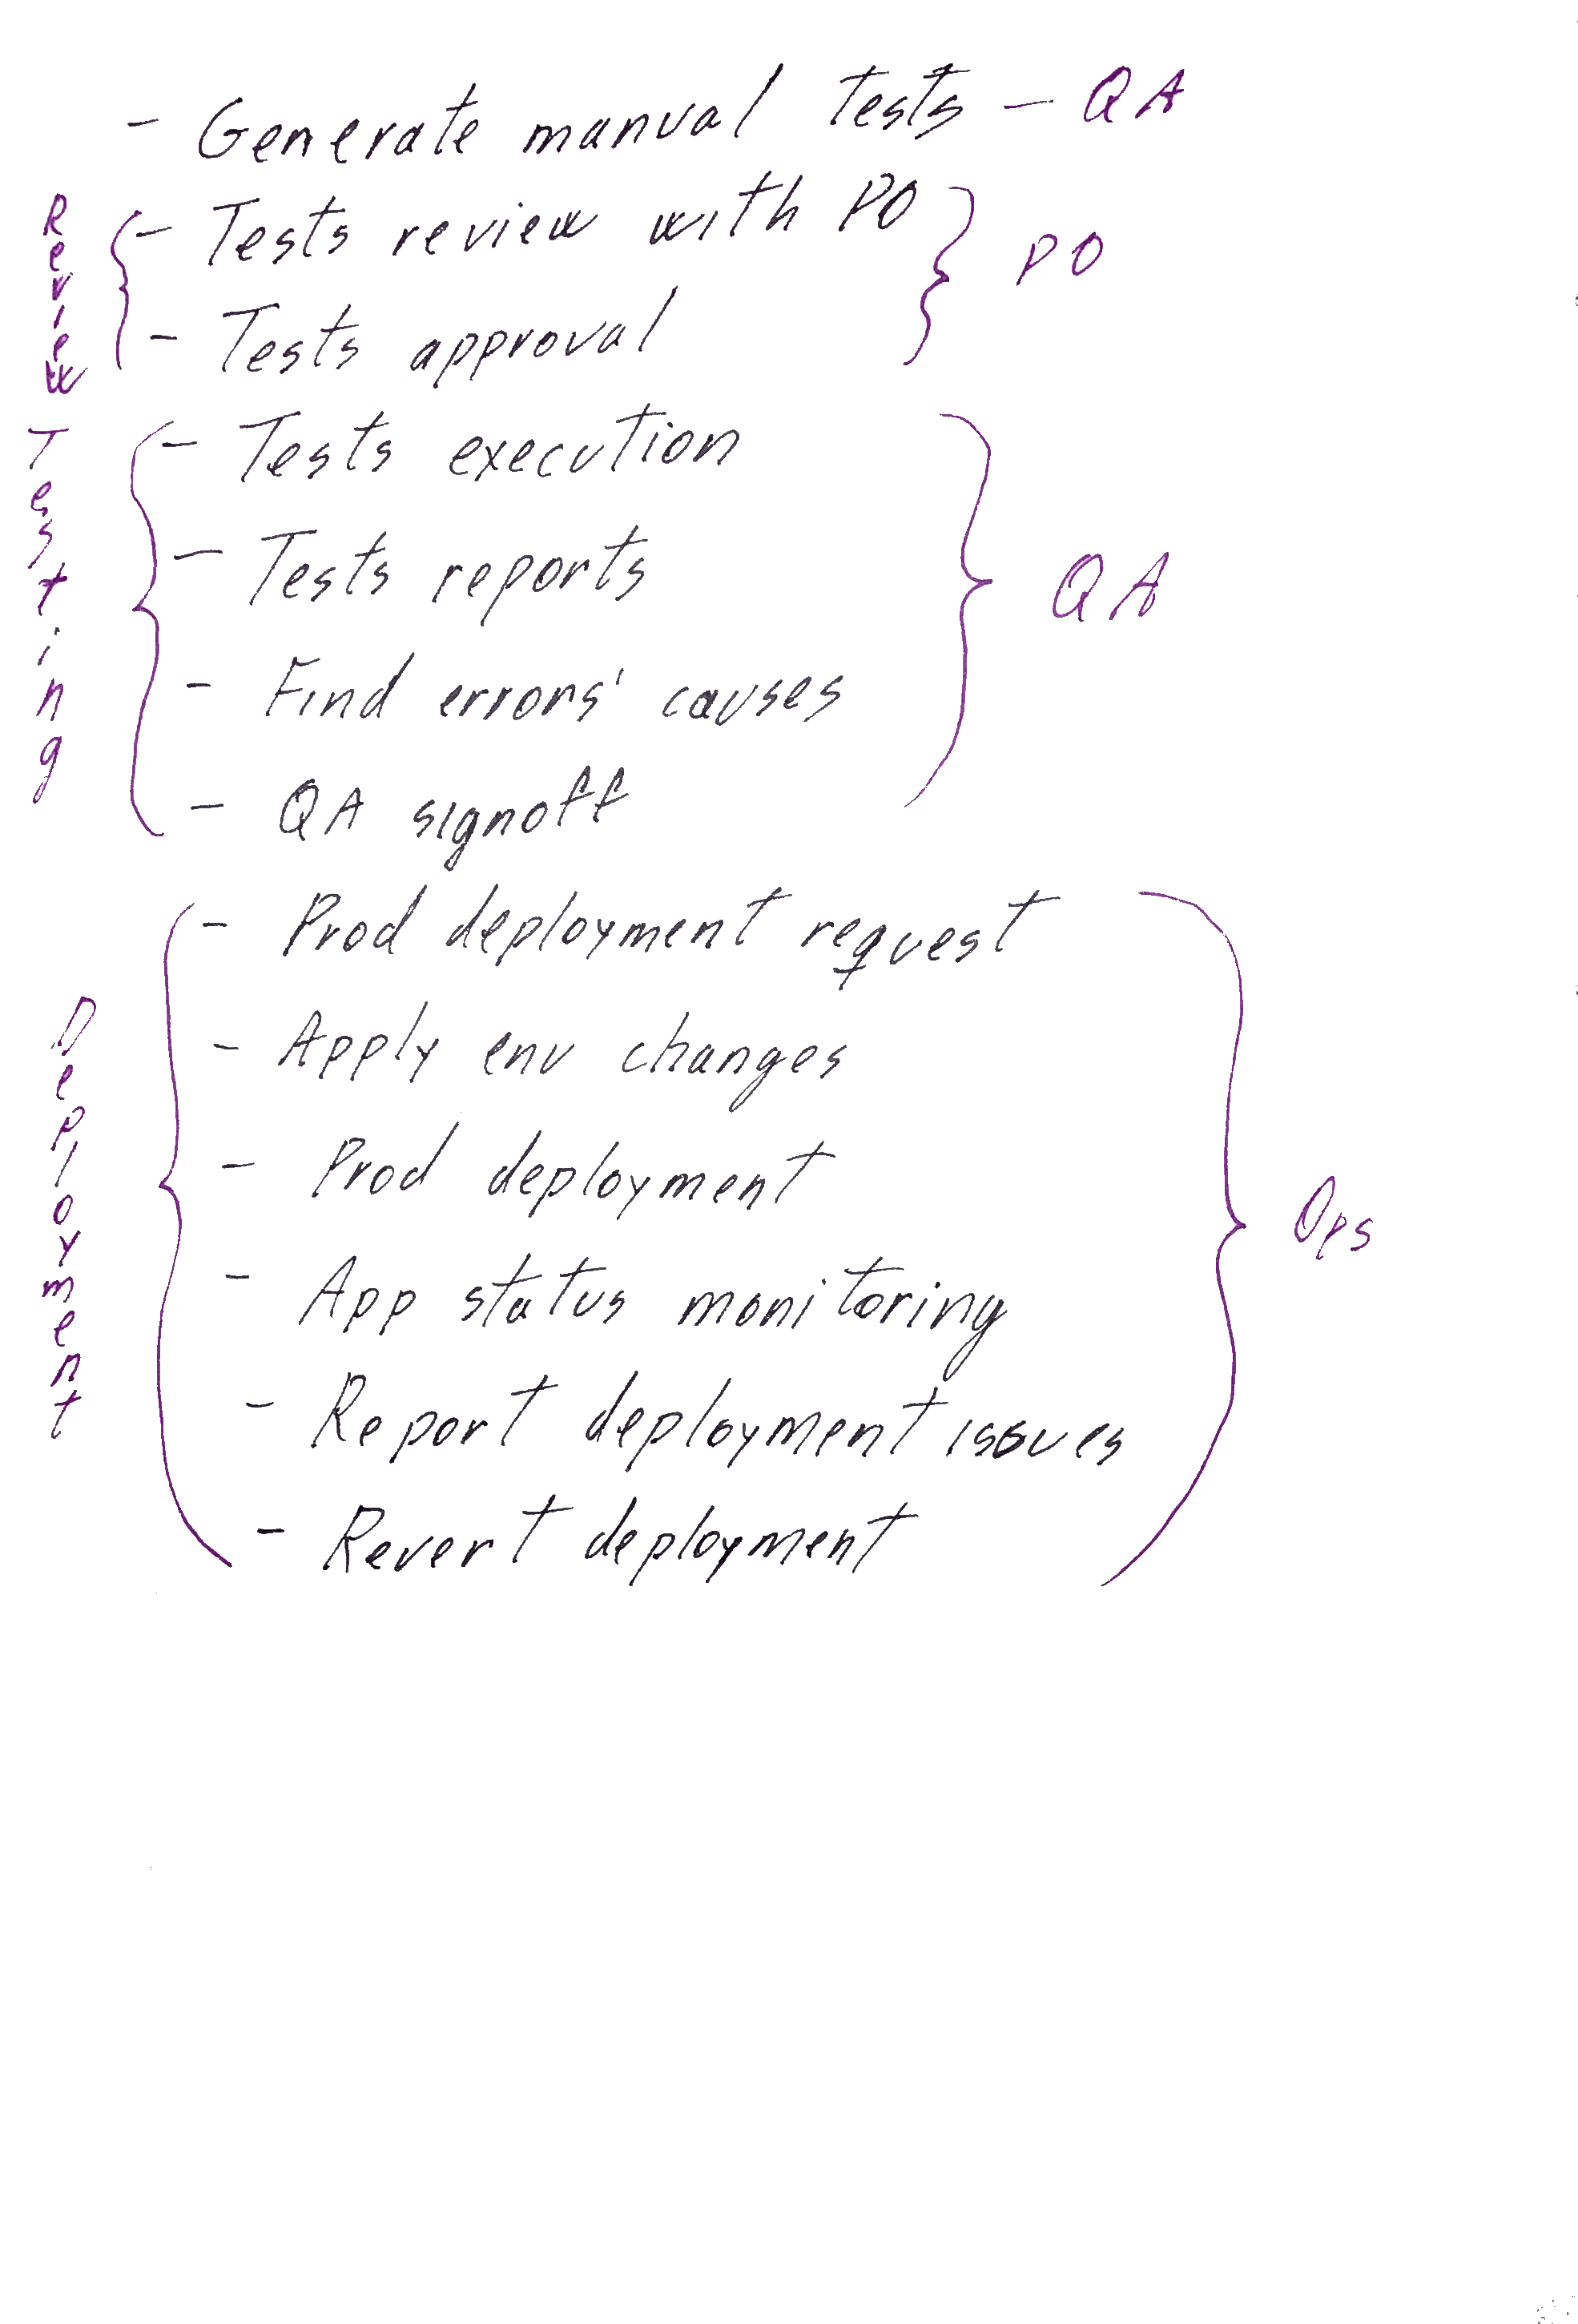 - Generate manual tests - QA
Review
- Tests review with PO
- Tests approval
PO
Testing
- Tests execution
- Tests reports
- Find errors' causes
- QA signoff
QA
Deployment
- Prod deployment request
- Apply env changes
- Prod deployment
- App status monitoring
- Report deployment issues
- Revert deployment
Ops